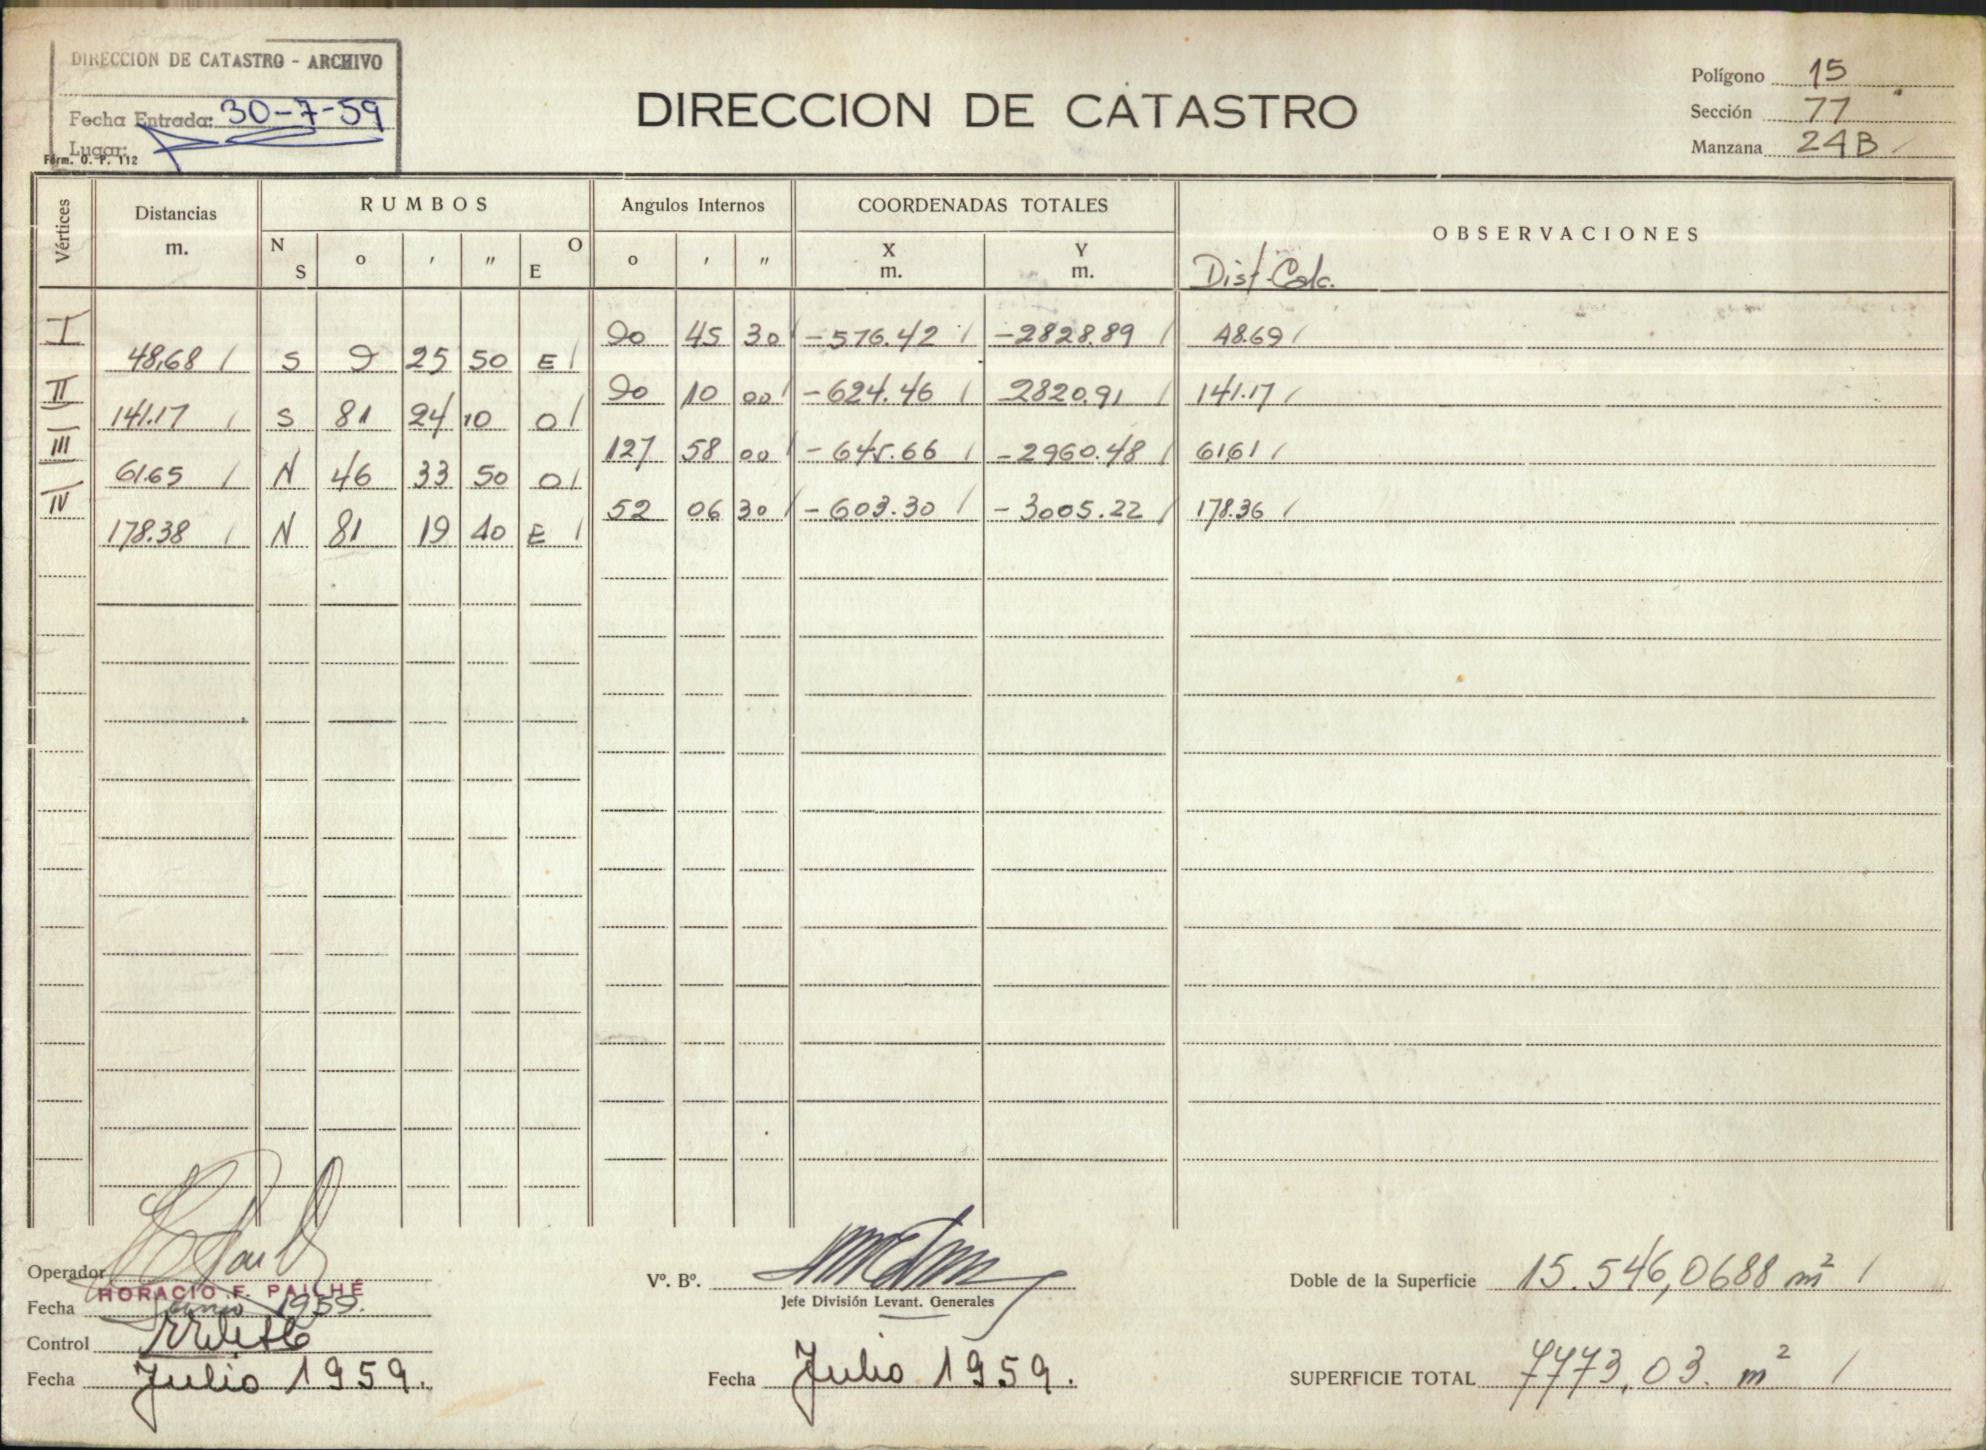 DIRECCION DE CATASTRO - ARCHIVO
Fecha Entrada: 30-7-59
Lugar:
Form. O. P. 112
DIRECCION DE CATASTRO
Polígono 15
Sección 77
Manzana 24B
Vértices Distancias m. RUMBOS Angulos Internos COORDENADAS TOTALES OBSERVACIONES
N S ° ' " O E ° ' " X m. Y m. Dist Calc.
I 90 45 30 -576.42 -2828.89 48.69
48,68 S 9 25 50 E
II 90 10 00 -624.46 2820.91 141.17
141.17 S 81 24 10 O
III 127 58 00 -645.66 -2960.48 61.61
61.65 N 46 33 50 O
IV 52 06 30 -603.30 -3005.22 178.36
178.38 N 81 19 40 E
Operador
HORACIO F. PAILHÉ
Fecha 1959.
Control
Fecha Julio 1959.
V°. B°.
Jefe División Levant. Generales
Fecha Julio 1959.
Doble de la Superficie 15.546,0688 m²
SUPERFICIE TOTAL 7773,03. m²